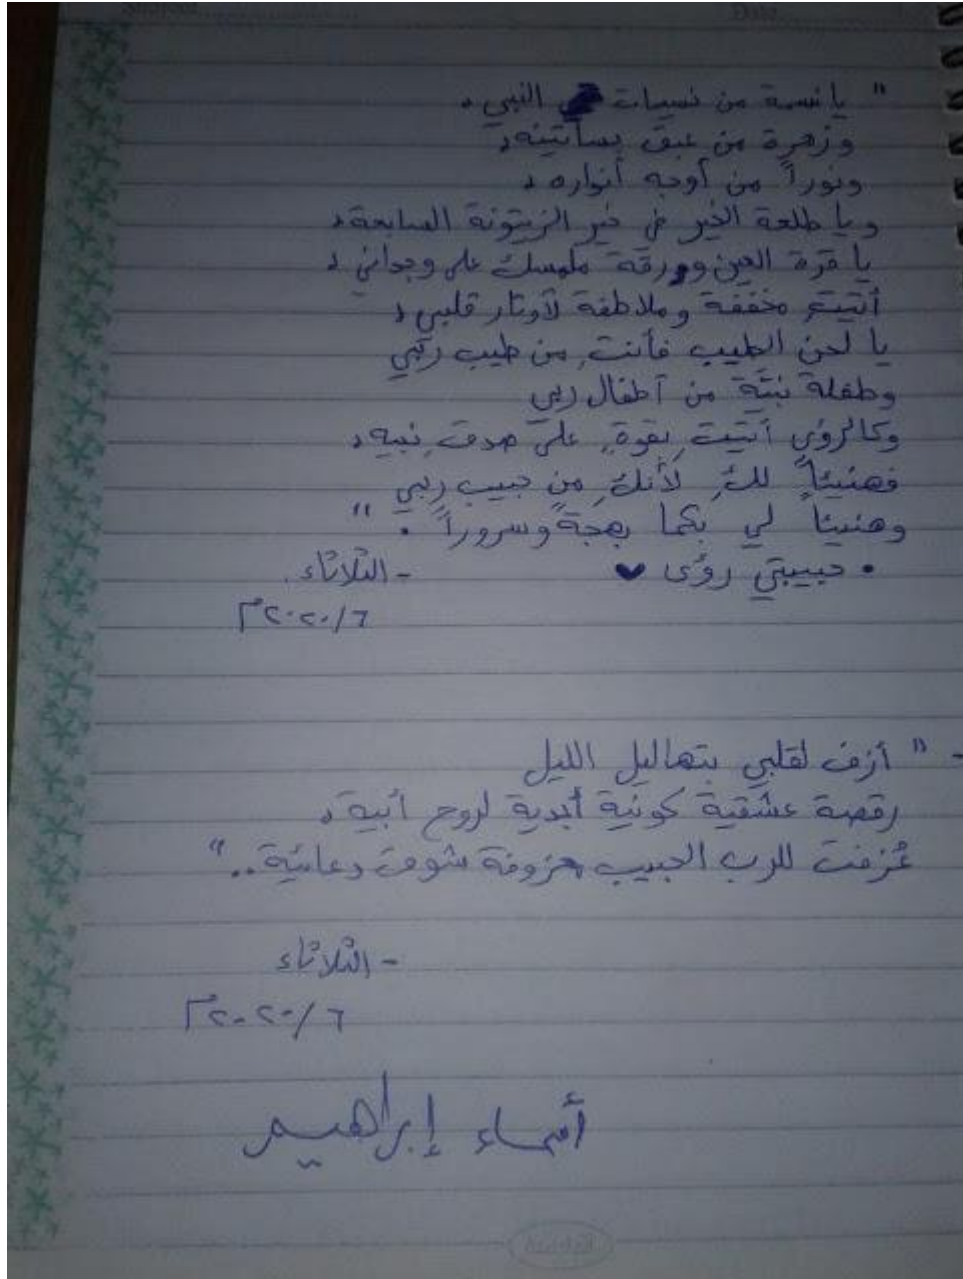 " يا نسمة من نسيمات النبي ،
وزهرة من عبق بساتينه ،
ونوراً من أوجه أنواره ،
ويا طلعة الخير في خير الزيتونة السابعة ،
يا قرة العين ورقة ملمسك على وجداني ،
أتيتِ مخففة وملاطفة لأوتار قلبي ،
يا لحن الطيب فأنتِ من طيب ربّي
وطفلة نبتة من أطفال ربي
وكالرؤى أتيتِ بقوةٍ على صدق نبيه ،
فهنيئاً لكِ لأنكِ من حبيب ربي
وهنيئاً لي بكما بهجةً وسروراً . "
• حبيبتي رؤى ♥ - الثلاثاء .
٢٠٢٠/٦م
- " أزف لقلبي بتهاليل الليل
رقصة عشقية كونية أبدية لروح أبية ،
عُزفت للرب الحبيب معزوفة شوق دعائية .. "
- الثلاثاء
٢٠٢٠/٦م
أسماء إبراهيم